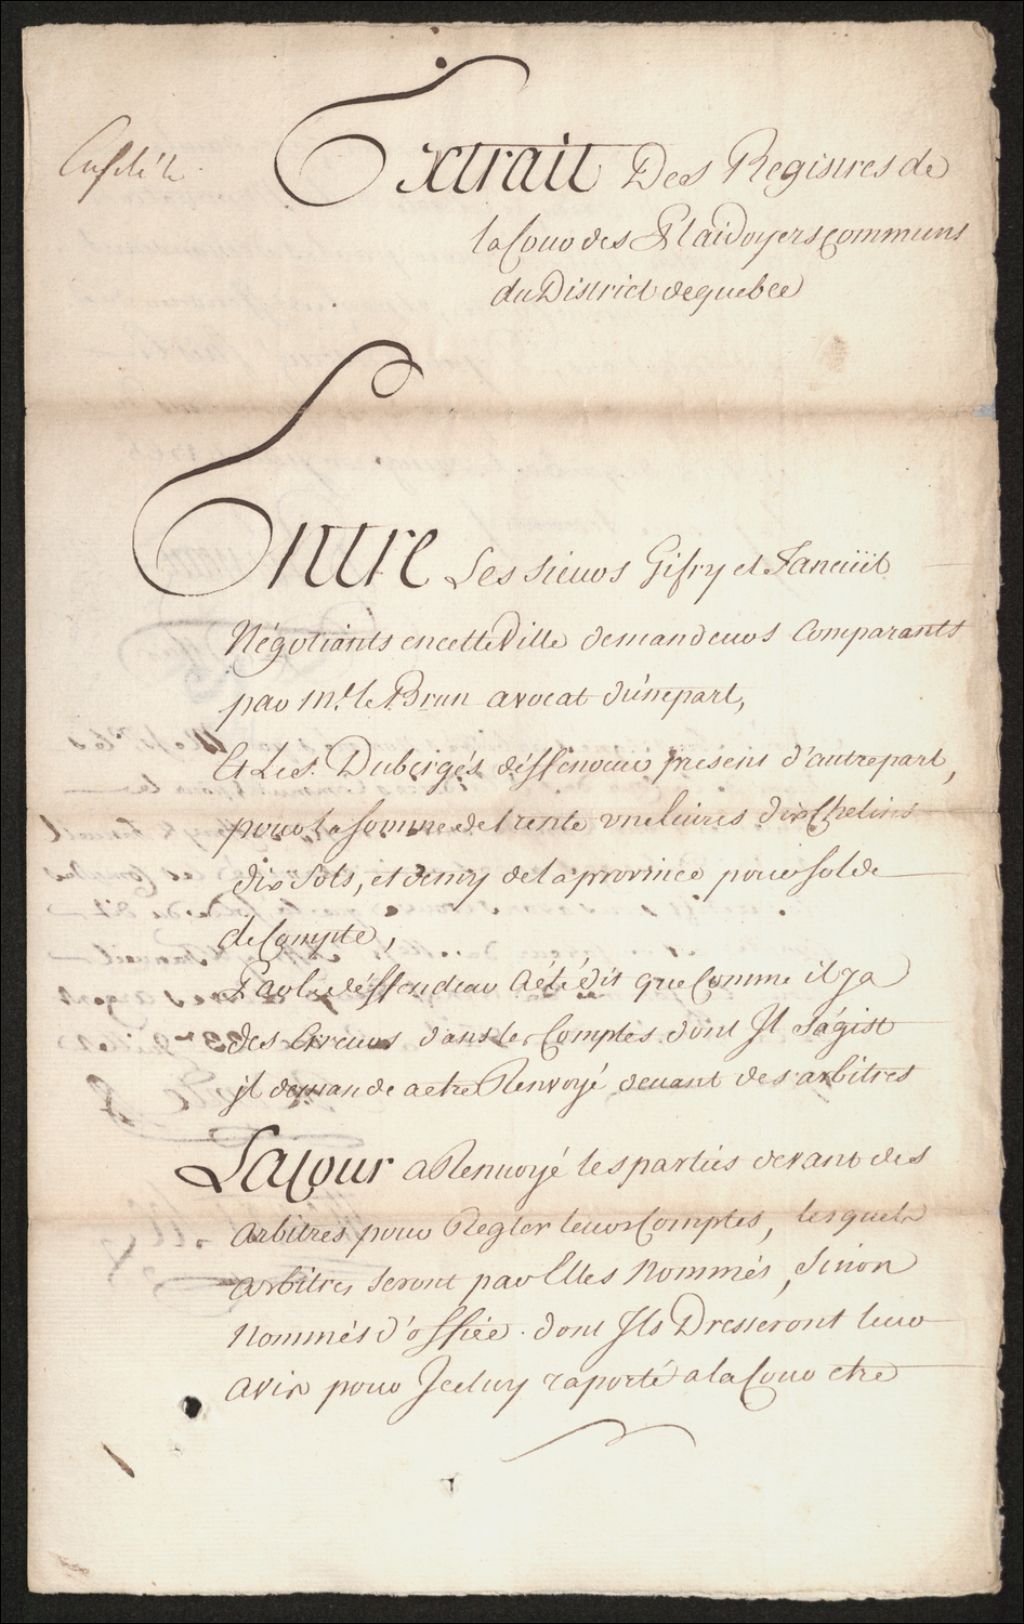 Extrait Des Registres de
la Cour des Plaidoyers communs
du District de quebec
Entre Les sieurs Gifry et
Négotiants en cette Ville demandeurs Comparants
par Mr. le Brun avocat d'une part,
Et Le S. Dubergés déffendeur présent d'autre part,
pour la somme de trente une livres dix Chelins
dix sols, et demy de la province pour solde
de Compte,
Par le déffendeur a été dit que Comme il ya
des erreurs dans les Comptes dont Il S'agist
il demande a etre Renvoyé devant des arbitres
La Cour a Renvoyé les parties devant des
arbitres pour Regler leurs Comptes, lesquels
arbitres seront par Elles nommés, sinon
nommés d'office. dont Ils Dresseront leur
avis pour Iceluy raporté a la Cour etre